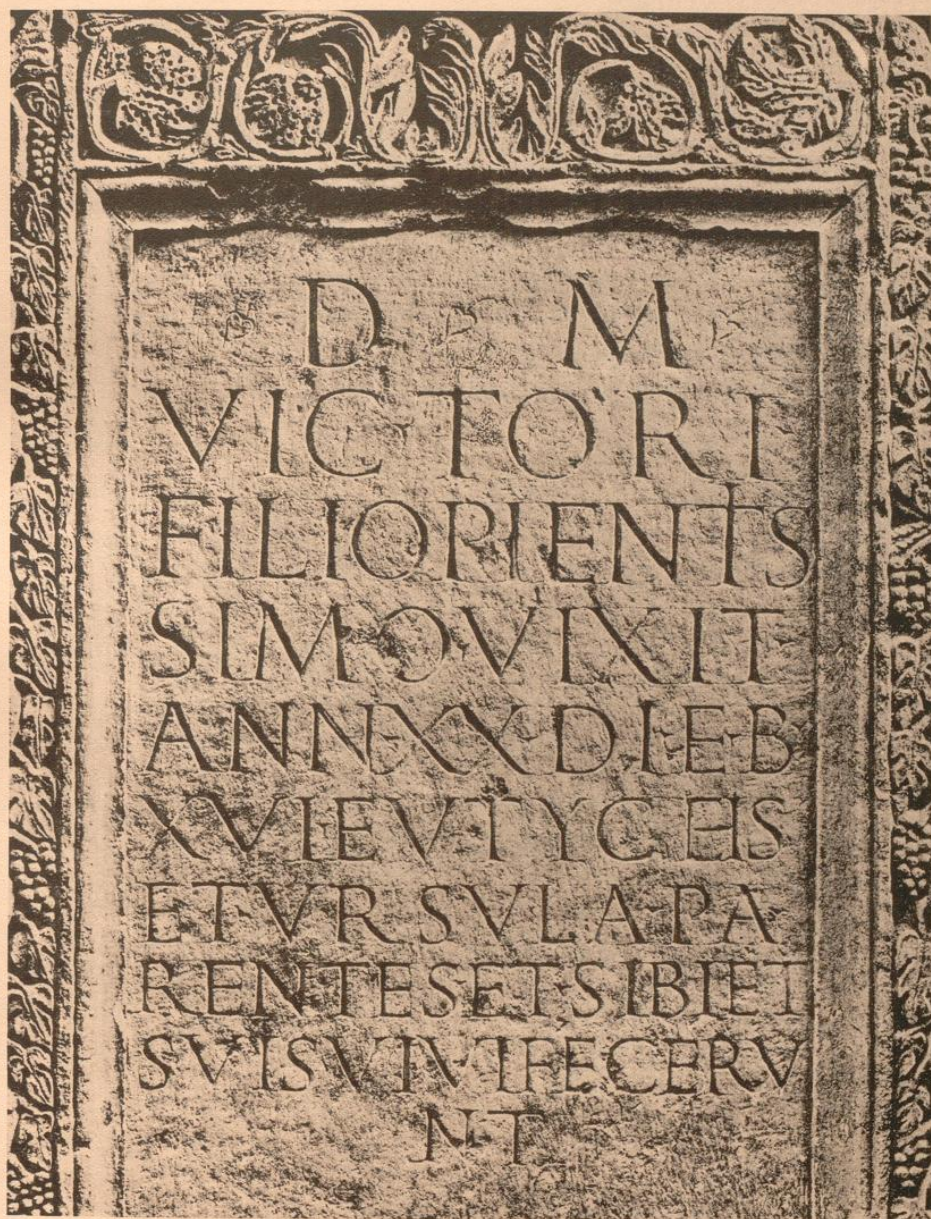 D M
VICTORI
FILIOPIENTS
SIMOVIXIT
ANNXXDIEB
XVIEVTYCEIS
ETVRSVLAPA
RENTESETSIBIET
SVISVIVIFECERV
NT